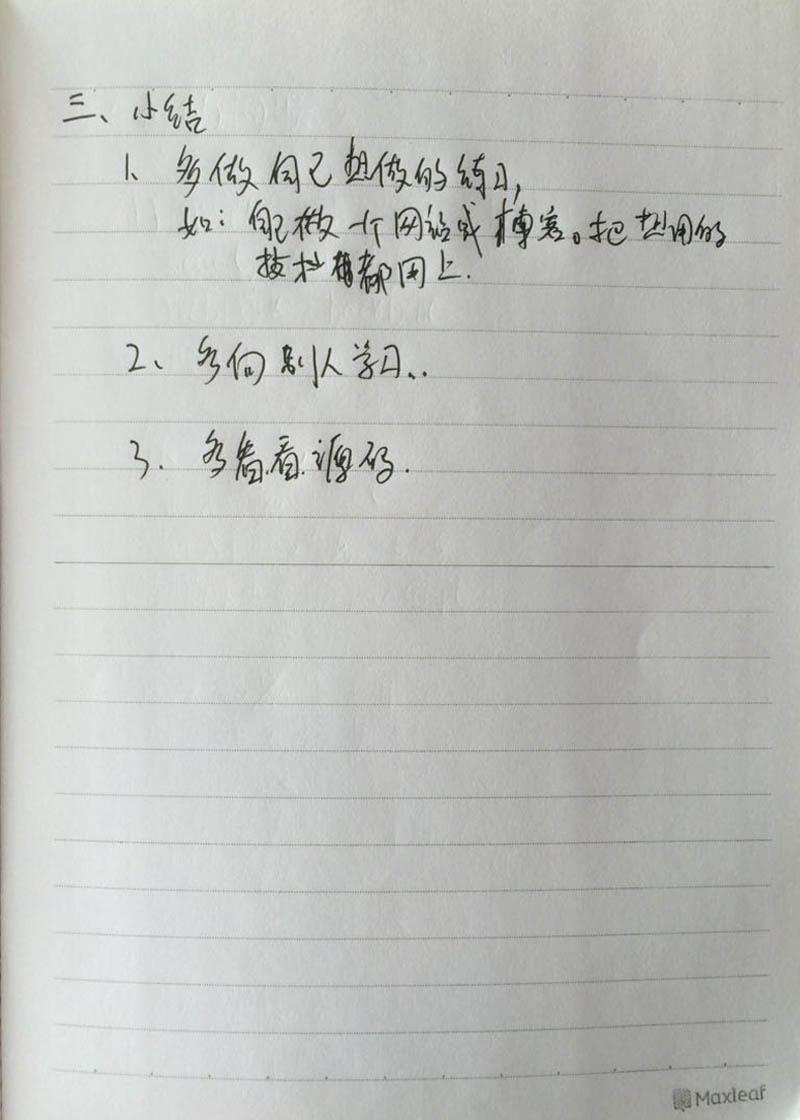 三、小结
1、多做自己想做的练习,
如：自己做一个网站或博客。把想用的
技术都用上.
2、多向别人学习..
3.多看看源码.
Maxleaf